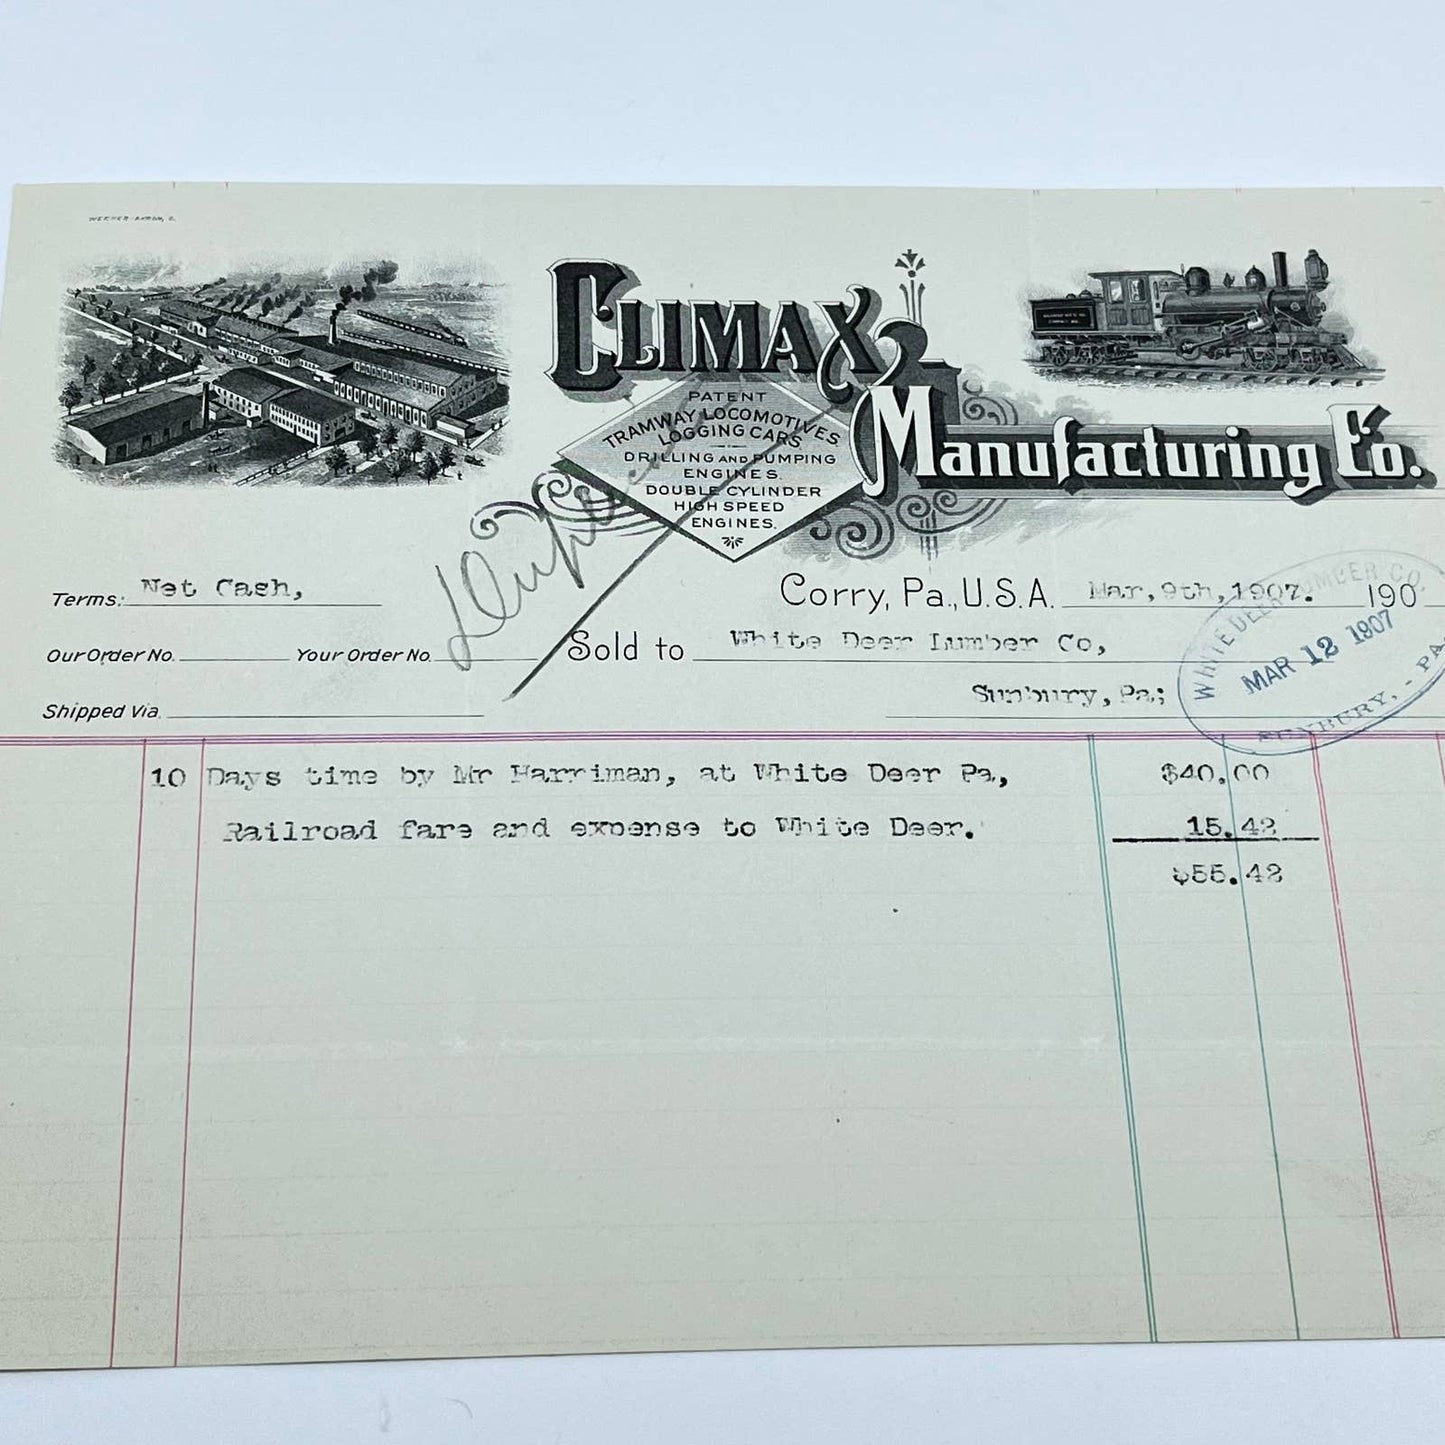 WERNER-AKRON, O.
CLIMAX
Manufacturing Co.
PATENT
TRAMWAY LOCOMOTIVES
LOGGING CARS
DRILLING AND PUMPING
ENGINES.
DOUBLE CYLINDER
HIGH SPEED
ENGINES.
Terms: Net Cash,
Corry, Pa., U.S.A. Mar, 9th, 1907. 190
Our Order No. Your Order No.
Sold to White Deer Lumber Co,
Sunbury, Pa;
Shipped Via
WHITE DEER LUMBER CO.
MAR 12 1907
SUNBURY, - PA
10 Days time by Mr Harriman, at White Deer Pa, $40.00
Railroad fare and expense to White Deer. 15.42
$55.42